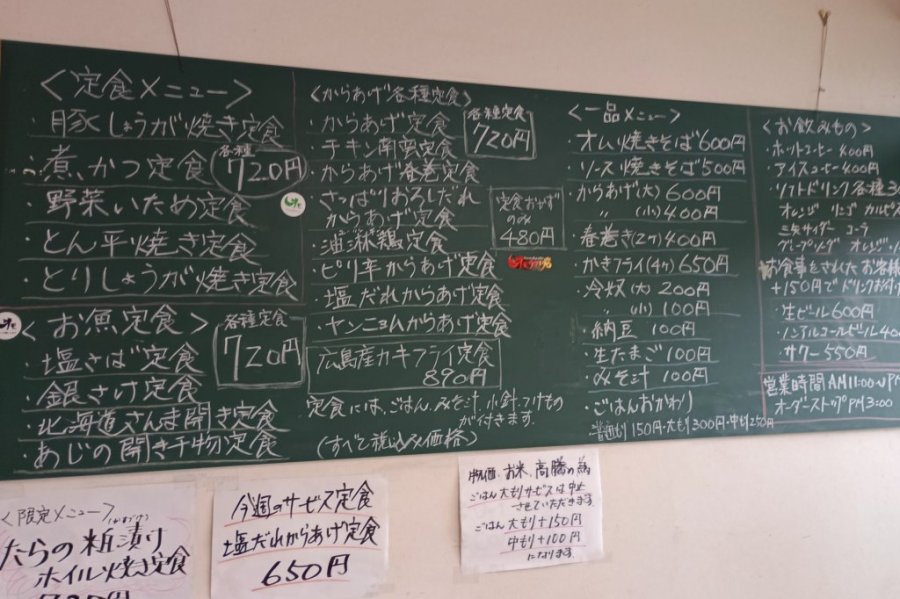 <定食メニュー>
・豚しょうが焼き定食
・煮かつ定食
各種
720円
・野菜いため定食
・とん平焼き定食
・とりしょうが焼き定食
<お魚定食>
各種定食
720円
・塩さば定食
・銀さけ定食
・北海道さんま開き定食
・あじの開き干物定食
<からあげ各種定食>
各種定食
720円
・からあげ定食
・チキン南蛮定食
・からあげ春巻定食
・さっぱりおろしだれ
からあげ定食
・油淋鶏定食
・ピリ辛からあげ定食
・塩だれからあげ定食
・ヤンニョムからあげ定食
定食おかず
のみ
480円
広島産カキフライ定食
890円
定食には、ごはん、みそ汁、小鉢、つけもの
が付きます。
(すべて税込み価格)
<一品メニュー>
・オム焼きそば600円
・ソース焼きそば500円
・からあげ(大)600円
〃(小)400円
・春巻き(2ヶ)400円
・かきフライ(4ヶ)650円
・冷奴(大)200円
〃(小)100円
・納豆 100円
・生たまご100円
・みそ汁 100円
・ごはんおかわり
普通もり150円・大もり300円・中もり250円
<お飲みもの>
・ホットコーヒー 400円
・アイスコーヒー 400円
・ソフトドリンク各種
オレンジ リンゴ カルピス
三矢サイダー コーラ
お食事をされたお客様
+150円でドリンクお付け
・生ビール600円
・ノンアルコールビール
・サワー 550円
営業時間 AM11:00〜PM
オーダーストップPM3:00
<限定メニュー>
たらの粕漬け
ホイル焼き定食
今週のサービス定食
塩だれからあげ定食
650円
物価、お米、高騰の為
ごはん大もりサービスは中止
させていただきます。
ごはん大もり+150円
中もり+100円
になります。